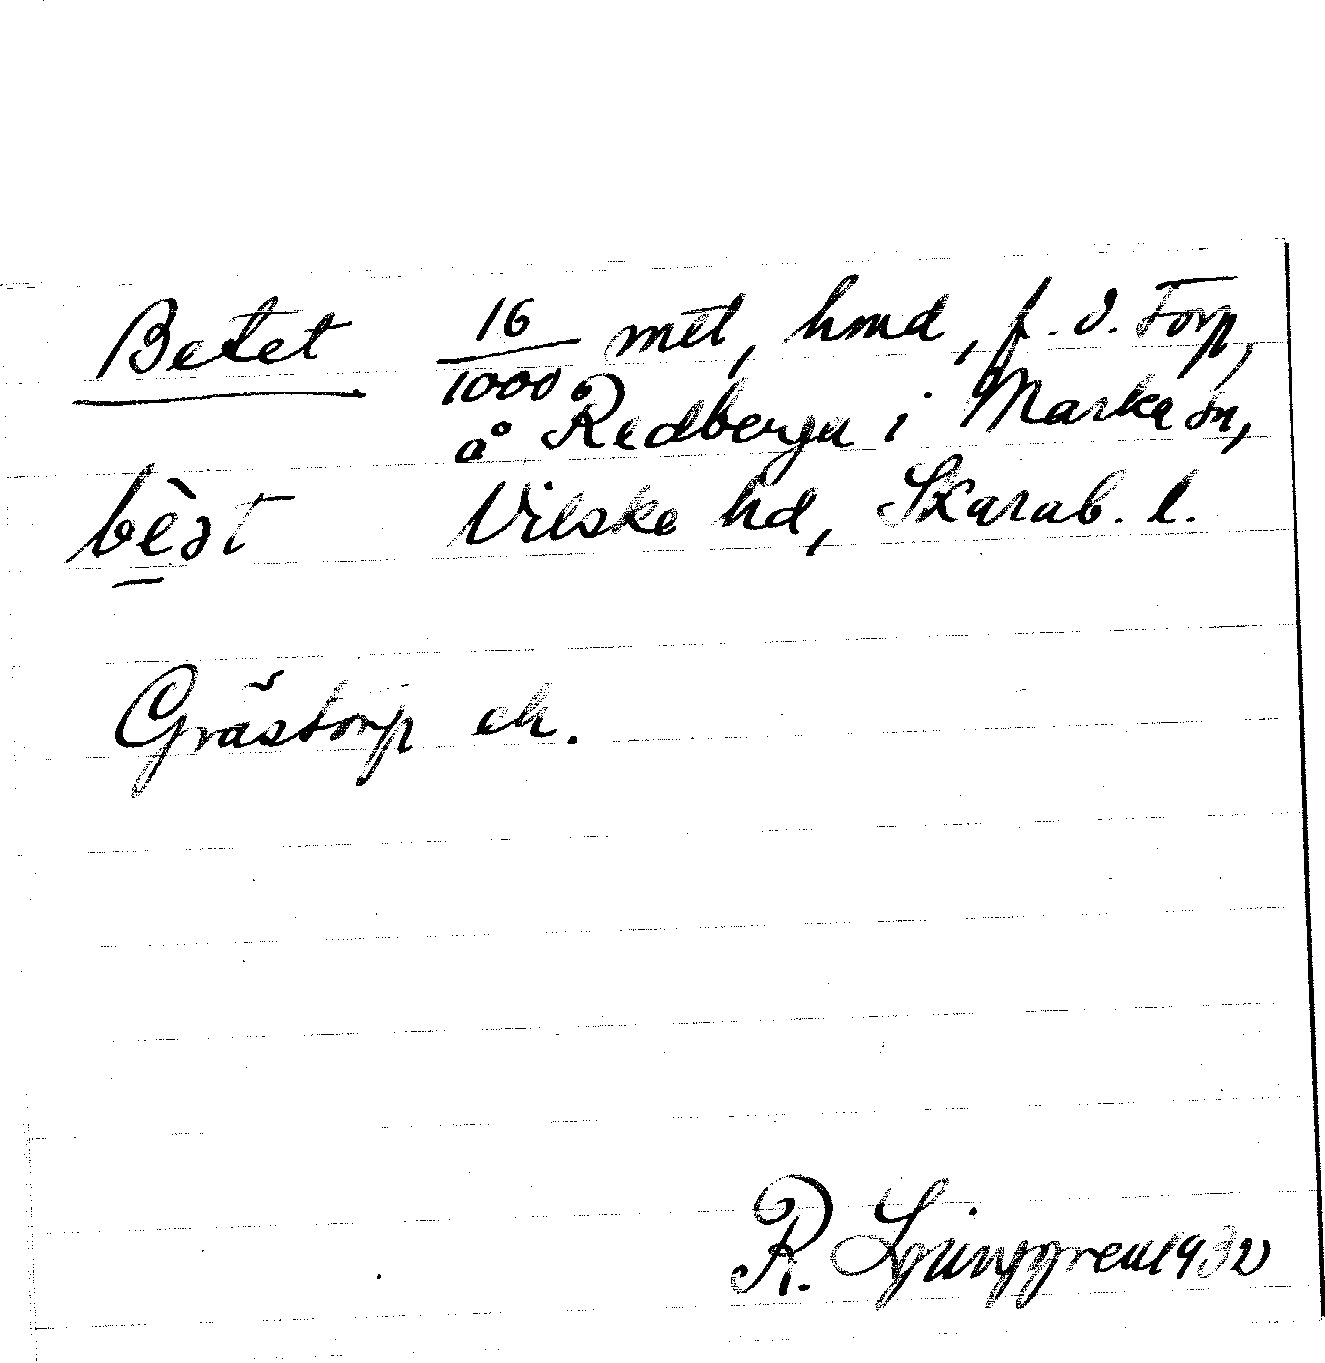 Betet 16/1000 mtl, hmd, f. d. Torp,
å Redberga i Marka sn,
bèst Vilske hd, Skarab. l.
Grästorp ek.
R. Ljunggren 1932